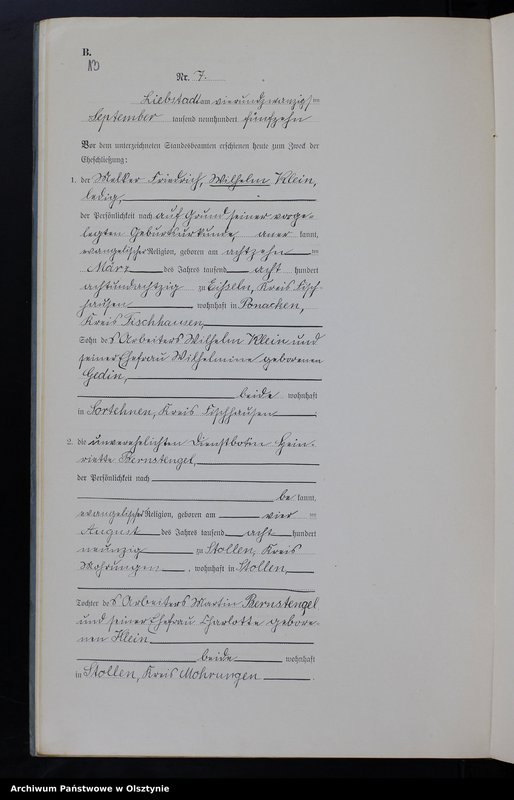 B.
Nr. 7.
Liebstadt am vierundzwanzigsten
September tausend neunhundert fünfzehn
Vor dem unterzeichneten Standesbeamten erschienen heute zum Zweck der
Eheschließung:
1. der Melker Friedrich, Wilhelm Klein,
ledig,
der Persönlichkeit nach auf Grund seiner vorge-
legten Geburtsurkunde, aner kannt,
evangelischer Religion, geboren am achtzehn ten
März des Jahres tausend acht hundert
achtundachtzig zu Eißeln, Kreis Fisch-
hausen wohnhaft in Ponacken,
Kreis Fischhausen,
Sohn des Arbeiters Wilhelm Klein und
seiner Ehefrau Wilhelmine geborenen
Gedin,
beide wohnhaft
in Sortehnen, Kreis Fischhausen
2. die unverehelichten Dienstboten Hein-
riette Bernstengel,
der Persönlichkeit nach
be kannt,
evangelischer Religion, geboren am vier ten
August des Jahres tausend acht hundert
neunzig zu Stollen, Kreis
Mohrungen, wohnhaft in Stollen,
Tochter des Arbeiters Martin Bernstengel
und seiner Ehefrau Charlotte gebore-
nen Klein
beide wohnhaft
in Stollen, Kreis Mohrungen.
Archiwum Państwowe w Olsztynie